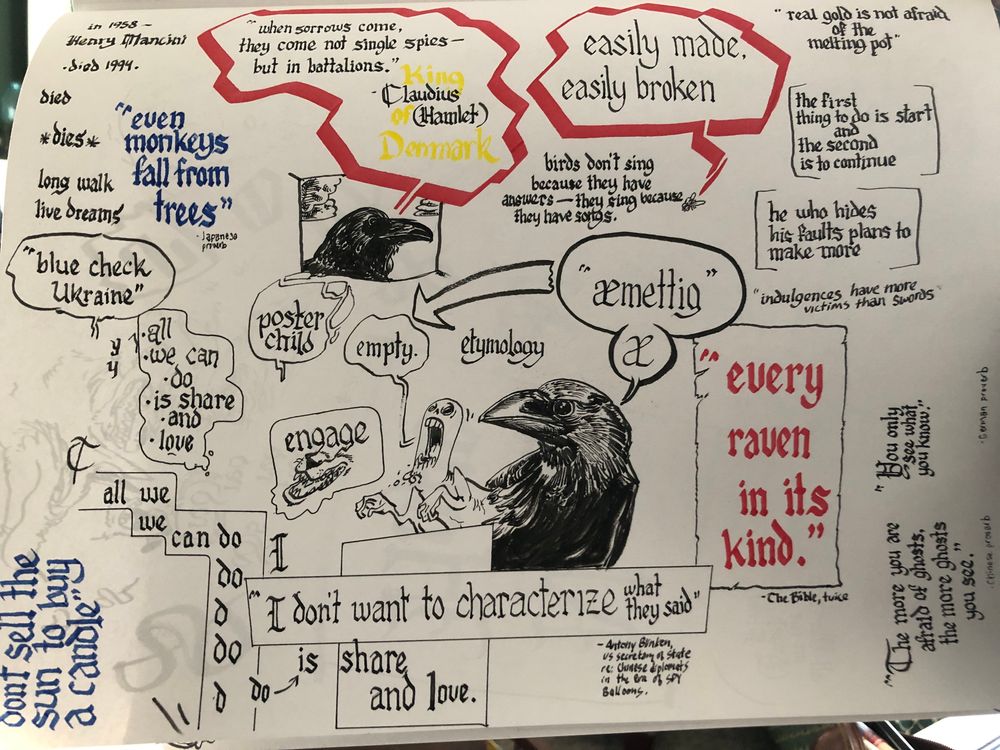 in 1958 –
Henry Mancini
· died 1994.
died
*dies*
long walk
live dreams
"even
monkeys
fall from
trees"
- Japanese
proverb
"when sorrows come,
they come not single spies —
but in battalions."
King
- Claudius
of (Hamlet)
Denmark
easily made,
easily broken
"real gold is not afraid
of the
melting pot"
the first
thing to do is start
and
the second
is to continue
birds don't sing
because they have
answers — they sing because
they have songs.
he who hides
his faults plans to
make more
"indulgences have more
victims than swords"
"blue check
Ukraine"
y
y
· all
· we can
· do
· is share
· and
· love
poster
child
empty.
etymology
"æmettig"
æ
engage
"every
raven
in its
kind."
- The Bible, twice
"You only
see what
you know."
- German proverb
"The more you are
afraid of ghosts,
the more ghosts
you see."
- Chinese proverb
all we
we
can do
do
d
do
d do
I
"I don't want to characterize what
they said"
is share
and love.
- Antony Blinken,
US Secretary of State
re: Chinese diplomats
in the Era of SPY
Balloons.
dont sell the
sun to buy
a candle"